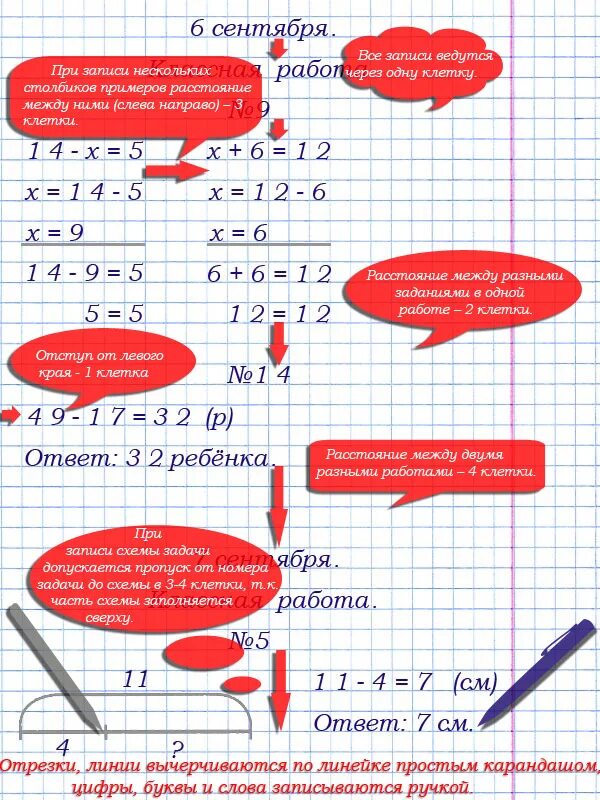 6 сентября.
Все записи ведутся
через одну клетку.
Классная работа
При записи нескольких
столбиков примеров расстояние
между ними (слева направо) – 3
клетки.
№9
1 4 - x = 5    x + 6 = 1 2
x = 1 4 - 5    x = 1 2 - 6
x = 9    x = 6
1 4 - 9 = 5    6 + 6 = 1 2
5 = 5    1 2 = 1 2
Расстояние между разными
заданиями в одной
работе – 2 клетки.
Отступ от левого
края - 1 клетка
№1 4
4 9 - 1 7 = 3 2 (р)
Ответ: 3 2 ребёнка.
Расстояние между двумя
разными работами – 4 клетки.
7 сентября.
При
записи схемы задачи
допускается пропуск от номера
задачи до схемы в 3-4 клетки, т.к.
часть схемы заполняется
сверху.
Классная работа.
№5
11
4    ?
1 1 - 4 = 7 (см)
Ответ: 7 см.
Отрезки, линии вычерчиваются по линейке простым карандашом,
цифры, буквы и слова записываются ручкой.